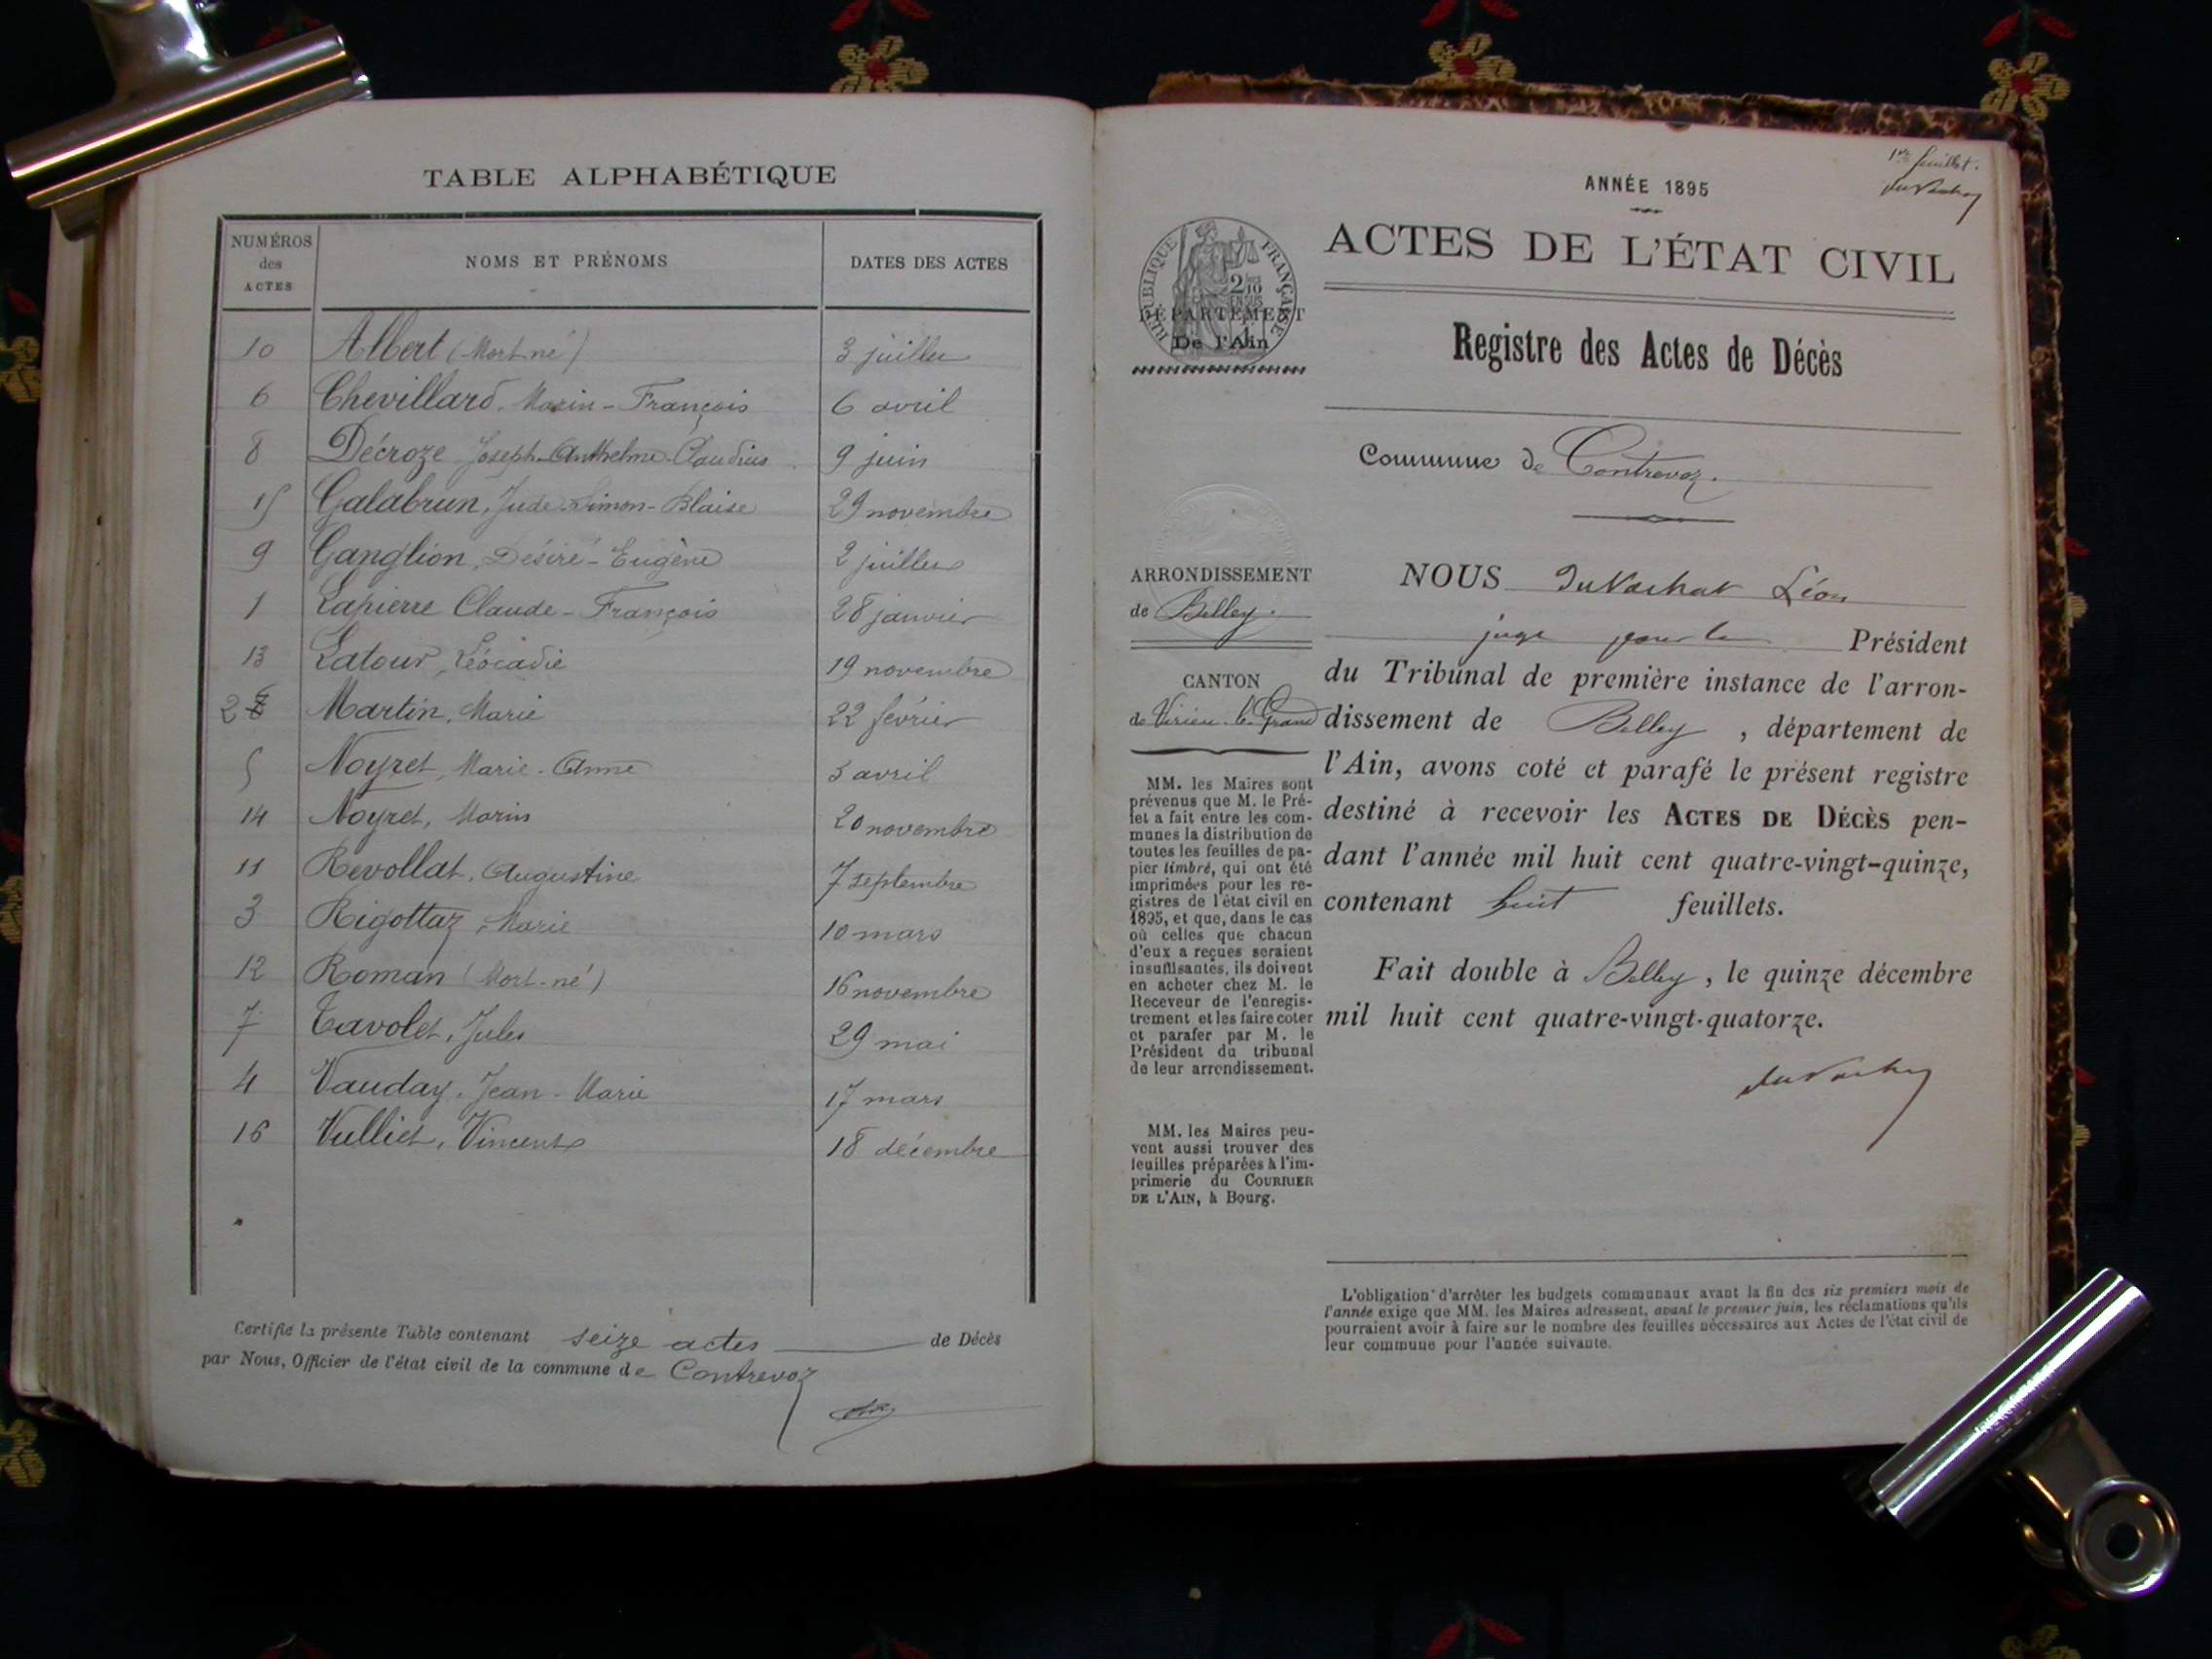 TABLE ALPHABÉTIQUE
NUMÉROS des ACTES NOMS ET PRÉNOMS DATES DES ACTES
10 Albert (Mort-né) 3 juillet
6 Chevillard, Marin-François 6 avril
8 Décroze Joseph-Anthelme-Claudius 9 juin
15 Galabrun, Jude-Simon-Blaise 29 novembre
9 Ganglion, Désiré-Eugène 2 juillet
1 Lapierre Claude-François 28 janvier
13 Latour, Léocadie 19 novembre
2 Martin, Marie 22 février
5 Noyret, Marie-Anne 3 avril
14 Noyret, Marin 20 novembre
11 Revollat, Augustine 7 septembre
3 Rigottaz, Marie 10 mars
12 Roman (Mort-né) 16 novembre
7 Tavolet, Jules 29 mai
4 Vauday, Jean-Marie 17 mars
16 Vulliet, Vincent 18 décembre
Certifié la présente Table contenant seize actes de Décès
par Nous, Officier de l'état civil de la commune de Contrevoz
1er feuillet.
ANNÉE 1895
ACTES DE L'ÉTAT CIVIL
RÉPUBLIQUE FRANÇAISE
2/10 EN SUS
DÉPARTEMENT
De l'Ain
Registre des Actes de Décès
Commune de Contrevoz.
ARRONDISSEMENT
de Belley.
CANTON
de Virieu-le-Grand
MM. les Maires sont
prévenus que M. le Pré-
fet a fait entre les com-
munes la distribution de
toutes les feuilles de pa-
pier timbré, qui ont été
imprimées pour les re-
gistres de l'état civil en
1895, et que, dans le cas
où celles que chacun
d'eux a reçues seraient
insuffisantes, ils doivent
en acheter chez M. le
Receveur de l'enregis-
trement et les faire coter
et parafer par M. le
Président du tribunal
de leur arrondissement.
MM. les Maires peu-
vent aussi trouver des
feuilles préparées à l'im-
primerie du COURRIER
DE L'AIN, à Bourg.
NOUS DuVachat Léon
juge pour le Président
du Tribunal de première instance de l'arron-
dissement de Belley, département de
l'Ain, avons coté et parafé le présent registre
destiné à recevoir les ACTES DE DÉCÈS pen-
dant l'année mil huit cent quatre-vingt-quinze,
contenant huit feuillets.
Fait double à Belley, le quinze décembre
mil huit cent quatre-vingt-quatorze.
DuVachat
L'obligation d'arrêter les budgets communaux avant la fin des six premiers mois de
l'année exige que MM. les Maires adressent, avant le premier juin, les réclamations qu'ils
pourraient avoir à faire sur le nombre des feuilles nécessaires aux Actes de l'état civil de
leur commune pour l'année suivante.